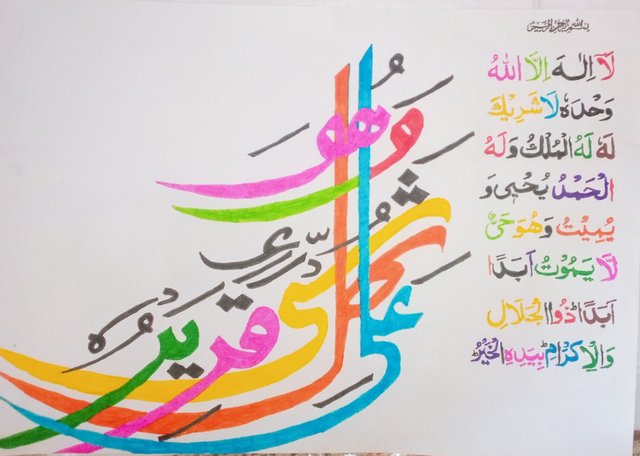 بسم الله الرحمن الرحيم
لَا اِلٰهَ اِلَّا اللهُ
وَحْدَهٗ لَا شَرِيْكَ
لَهٗ لَهُ الْمُلْكُ وَلَهُ
الْحَمْدُ يُحْيٖ وَ
يُمِيْتُ وَهُوَ حَیٌّ
لَّا يَمُوْتُ اَبَدًا
اَبَدًا ذُوالْجَلَالِ
وَالْاِكْرَامِ بِيَدِهِ الْخَيْرُ
وَهُوَ عَلٰى كُلِّ شَیْءٍ قَدِیْرٌ